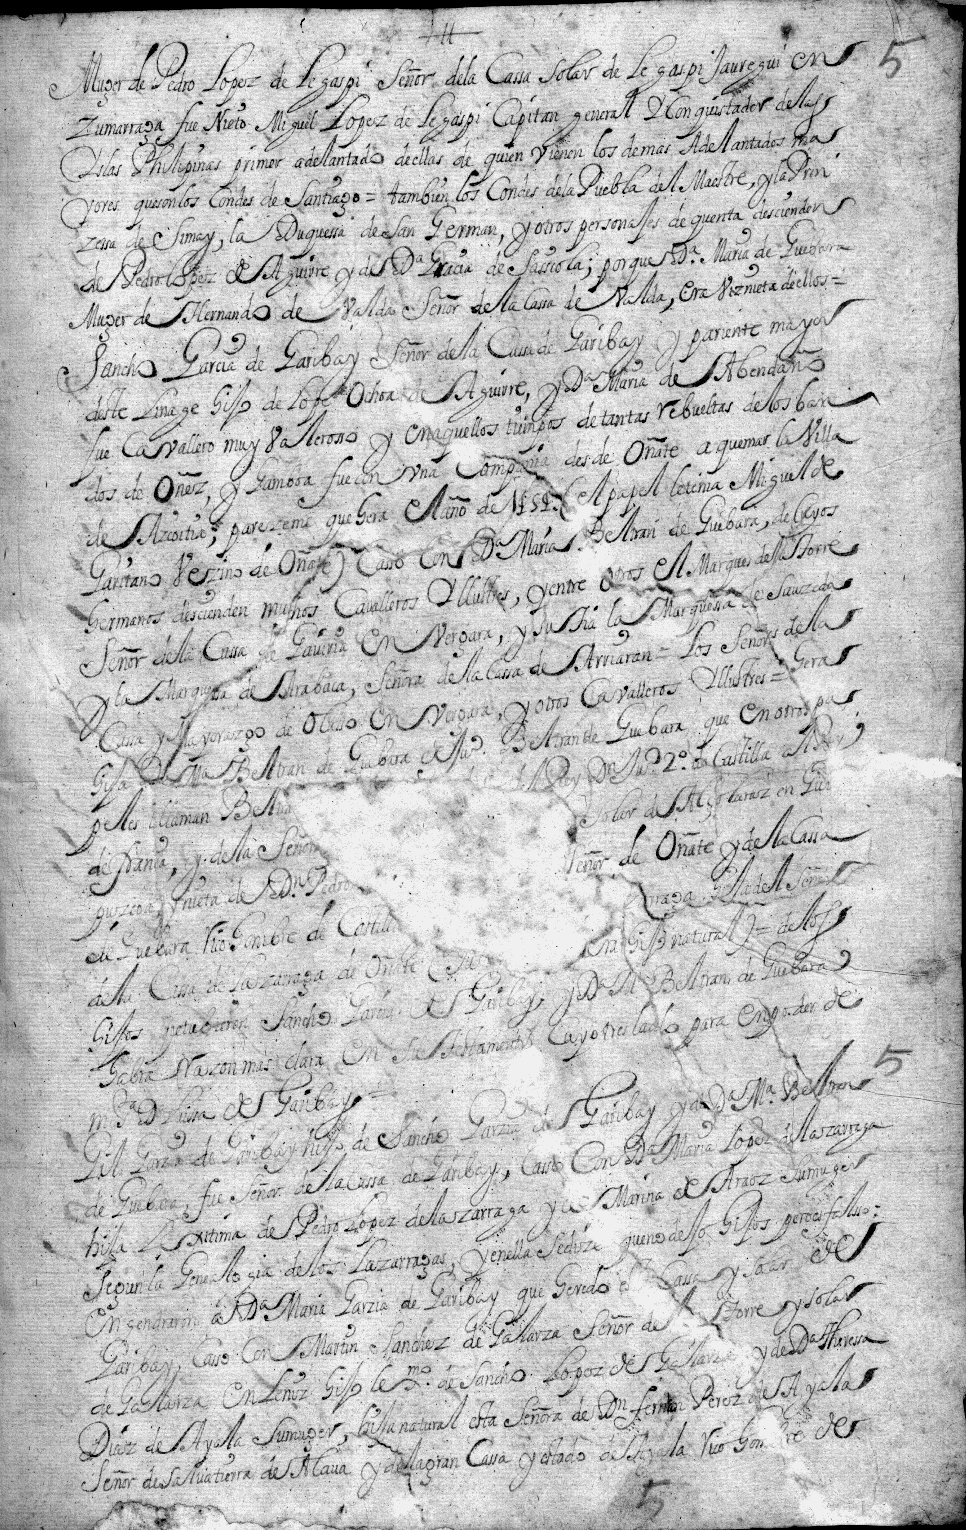 Muger de Pedro Lopez de Legaspi Señor dela Cassa Solar de Legaspi Jauregui en 5
Zumarraga fue Nieto Miguel Lopez de Legaspi Capitan general y Conquistador delas
Yslas Philipinas primer adelantado dellas de quien vienen los demas Adelantados ma
yores queson los Condes de Santiago = tambien los Condes dela Puebla del Maestre, y la Prin
zesa de Simay, la Duquessa de San German, y otros personajes de quenta descienden
de Pedro Lopez de Aguirre y de Dª Gracia de Sassiola; porque Dª Maria de Guebara
Muger de Hernando de Valda Señor dela Cassa de Valda, era Viznieta dellos =
Sancho Garcia de Garibay Señor dela Cassa de Garibay y pariente mayor
deste Linage hijo de Lope Ochoa de Aguirre, y Dª Maria de Abendaño
fue Cavallero muy Valeroso y en aquellos tiempos de tantas rebueltas delos ban
dos de Oñez, y Gamboa fue con una Compañia desde Oñate a quemar la Villa
de Azcoitia; parezeme que hera el año de (el papel le tenia Miguel de
Garitano Vezino de Oñate) Casó con Dª Maria Beltran de Guebara, de Cuyos
hermanos descienden muchos Cavalleros Yllustres, y entre otros el Marques dela Torre
Señor dela Cassa de Gaviria en Vergara, y su tia la Marquesa de Sauzeda
y la Marquesa de , Señora dela Cassa de Arriaran = los Señores dela
Cassa y Mayorazgo de Olaso en Vergara, y otros Cavalleros Yllustres = hera
hija Dª Mª Beltran de Guebara de Juº Beltran de Guebara que en otros pa
peles llaman Beltran Rey Dn Juº 2º de Castilla al Rey
de Francia, y dela Señora Solar de Algalaraz en Gui
puzcoa, y nieta de Dn Pedro Señor de Oñate y dela Cassa
de Guebara Rico Hombre de Castilla hija del Señor
dela Cassa de Lazarraga de Oñate hijo natural) = delos
hijos que tubieron Sancho Garcia de Garibay, y Dª Mª Beltran de Guebara
habra razon mas clara en su testamento Cuyo treslado para en poder de
m Dª Luisa de Garibay = 5
Gil Garzia de Garibay hijo de Sancho Garzia de Garibay y de Dª Mª Beltran
de Guebara, fue Señor dela Cassa de Garibay, Casó con Dª Maria Lopez de Lazarraga
hija Lexitima de Pedro Lopez de Lazarraga y de Marina de Araoz Su muger
segun la Genealogia delos Lazarragas, y en ella se dize que no dejo hijos pero es falso:
Engendraron á Dª Maria Garzia de Garibay que heredo la Cassa y Solar de
Garibay, Casó con Martin Sanchez de Galarza Señor dela Torre y Solar
de Galarza en Leniz hijo le mo de Sancho Lopez de Galarza y de Dª Theresa
Diaz de Ayala Su muger, hija natural esta Señora de Dn Fernan Perez de Ayala
Señor de Salvatierra de Alava y dela gran Cassa y estado de Ayala Rico hombre de
5